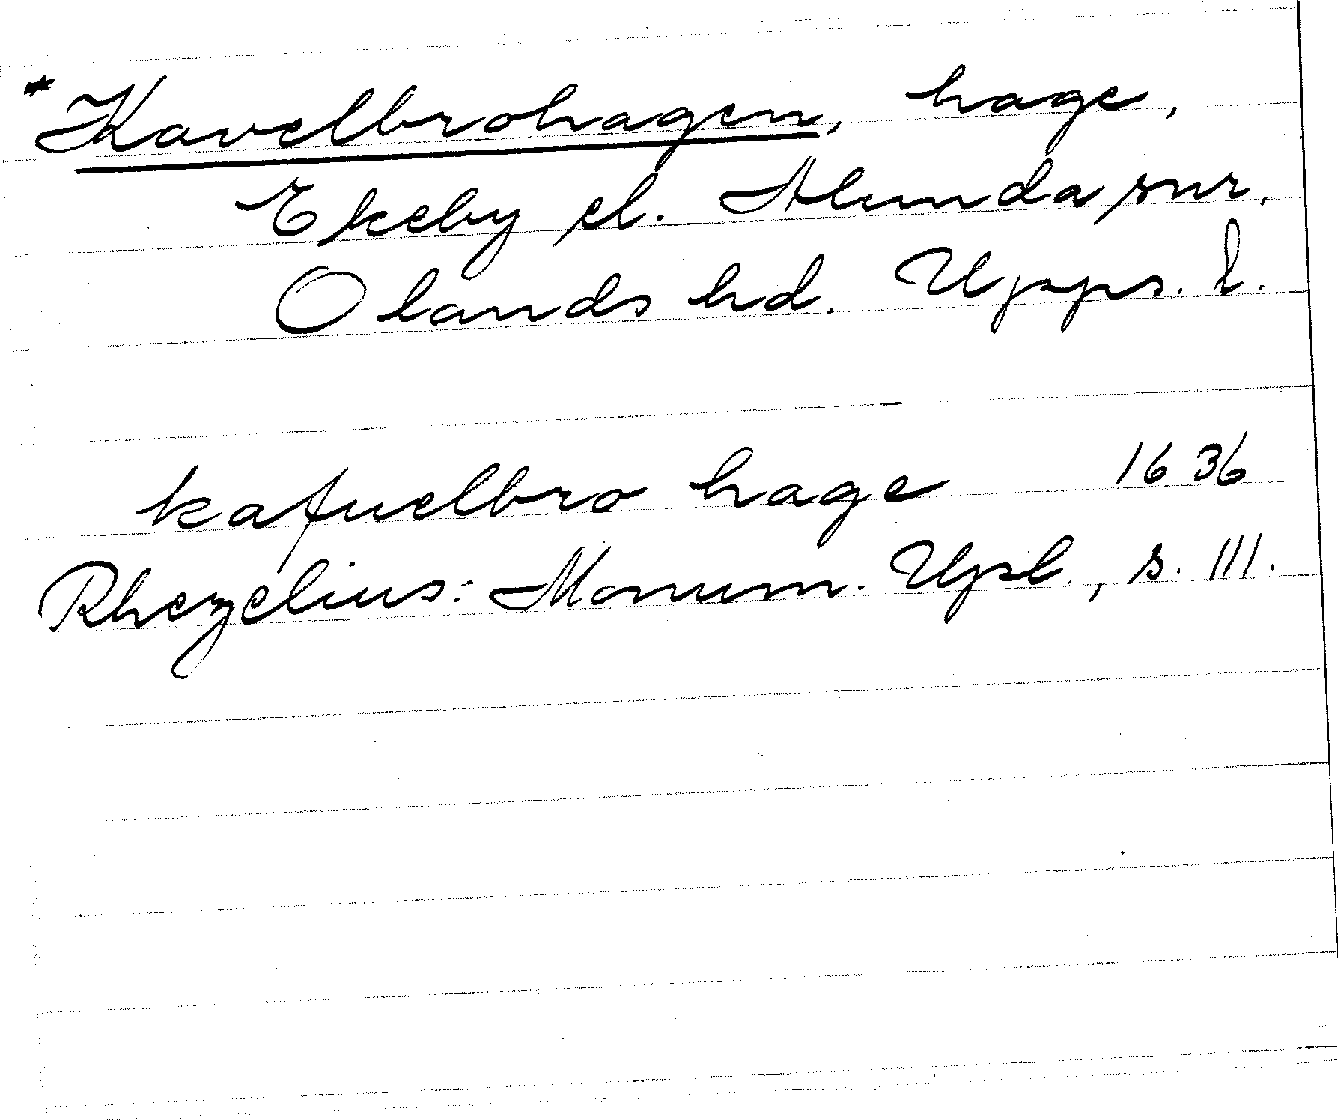 *Kavelbrohagen, hage,
Ekeby el. Alunda snr.
Olands hd. Upps. l.
kafuelbro hage 1636
Rhezelius: Monum. Upl., s. 111.